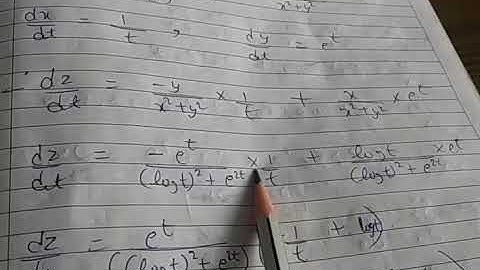 x²+y²
dx/dt = 1/t , dy/dt = e^t
∴ dz/dt = -y/(x²+y²) × 1/t + x/(x²+y²) × e^t
dz/dt = -e^t/((log t)² + e^2t) × 1/t + log t/((log t)² + e^2t) × e^t
dz = e^t/((log t)² + e^2t) 1/t + log t)